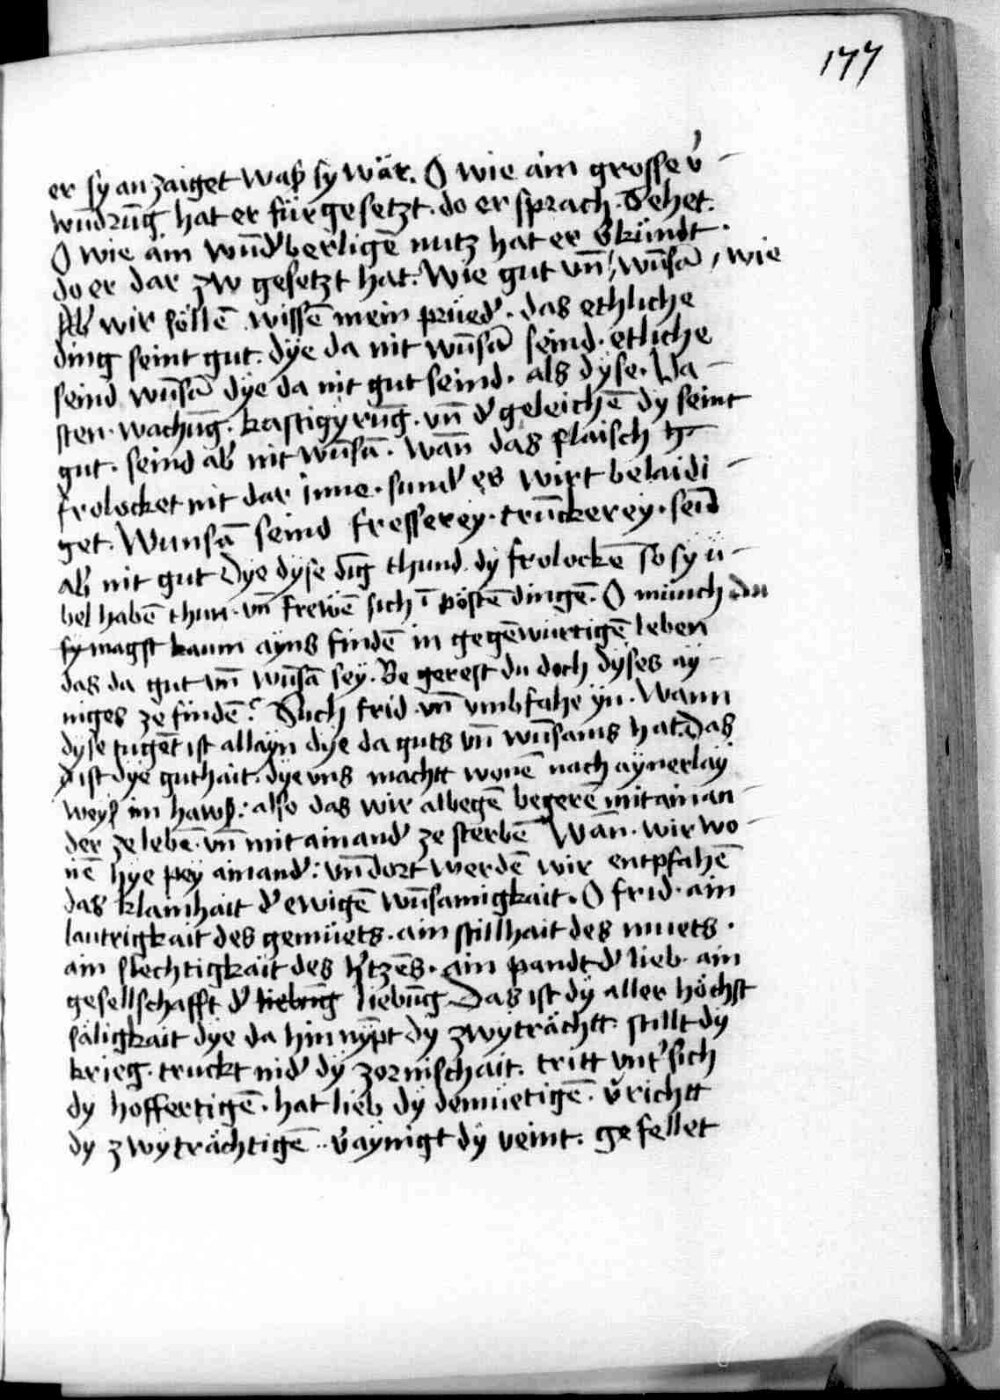 177
er sy an zaiget waß sy wär. O wie ain grosse v̓-
wūdrūg hat er für gesetzt. do er sprach. Sehet.
O wie ain wūd̓berligē nutz hat er v̓kündt.
do er dar zw gesetzt hat. Wie gut vn̄ wūsā, wie
wir söllē wissē mein prüed̓. das ethliche
ding seint gut. dÿe da nit wūsā seind. etliche
seind wūsā dÿe da nit gut seind. als dÿse. Va-
sten. wachūg. kastigÿrūg. vn̄ d̓ geleichē dy seint
gut. seind ab̓ nit wūsā. Wān das flaisch
frolocket nit dar inne. sund̓ es wirt belaidi-
get. Wunsā seind fresserey. trūckerey. seīd
ab̓ nit gut Dye dÿse dīg thund. dÿ frolockē so sy ü-
bel habē thun. vn̄ frewē sich ī pöstē dingē. O münch du
magst kaum ayns findē in gegēwürtigē leben
das da gut vn̄ wūsā seÿ. Be gerest du doch dÿses aÿ-
niges ze findē? Such frid. vn̄ vmbfahe ÿn. Wann
dyse tugēt ist allaÿn dÿe da guts vn̄ wūsams hat. Das
ist dÿe guthait. dÿe vns machtt wonē nach aÿnerlaÿ
weÿß im hawß: also das wir albegē begerē mit ainan-
der ze lebē. vn̄ mit ainand̓ ze sterbē Wān. wir wo-
nē hÿe peÿ ainand̓: vn̄ dort werdē wir entpfahē
das klainhait d̓ ewigē wūsamigkait. O frid. ain
lautrigkait des gemüets. ain stillhait des muets.
ain slechtigkait des h̓tzēs. ain pandt d̓ lieb. ain
gesellschafft d̓ liebūg liebūg Das ist dÿ aller höchst
säligkait dÿe da hin nÿpt dÿ zwÿträchtt. stillt dÿ
krieg. truckt nid̓ dÿ zornischait. tritt vnt̓ sich
dy hoffertigē. hat lieb dÿ demüetigē. v̓richtt
dy zwÿträchtigē. v̓aÿnigt dÿ veint. gefellet